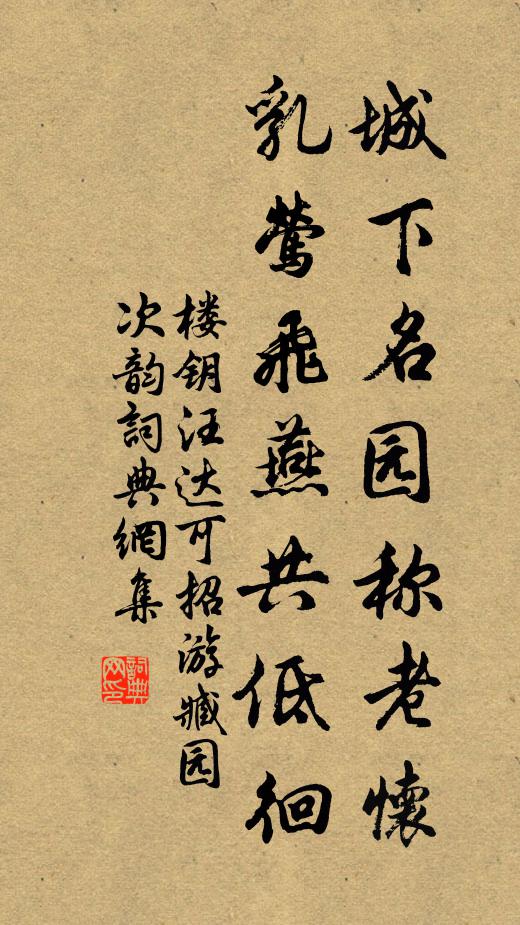 城下名园称老懷
乳莺飛燕共低徊
楼钥汪达可招游臧园
次韵詞典網集
詞典网印